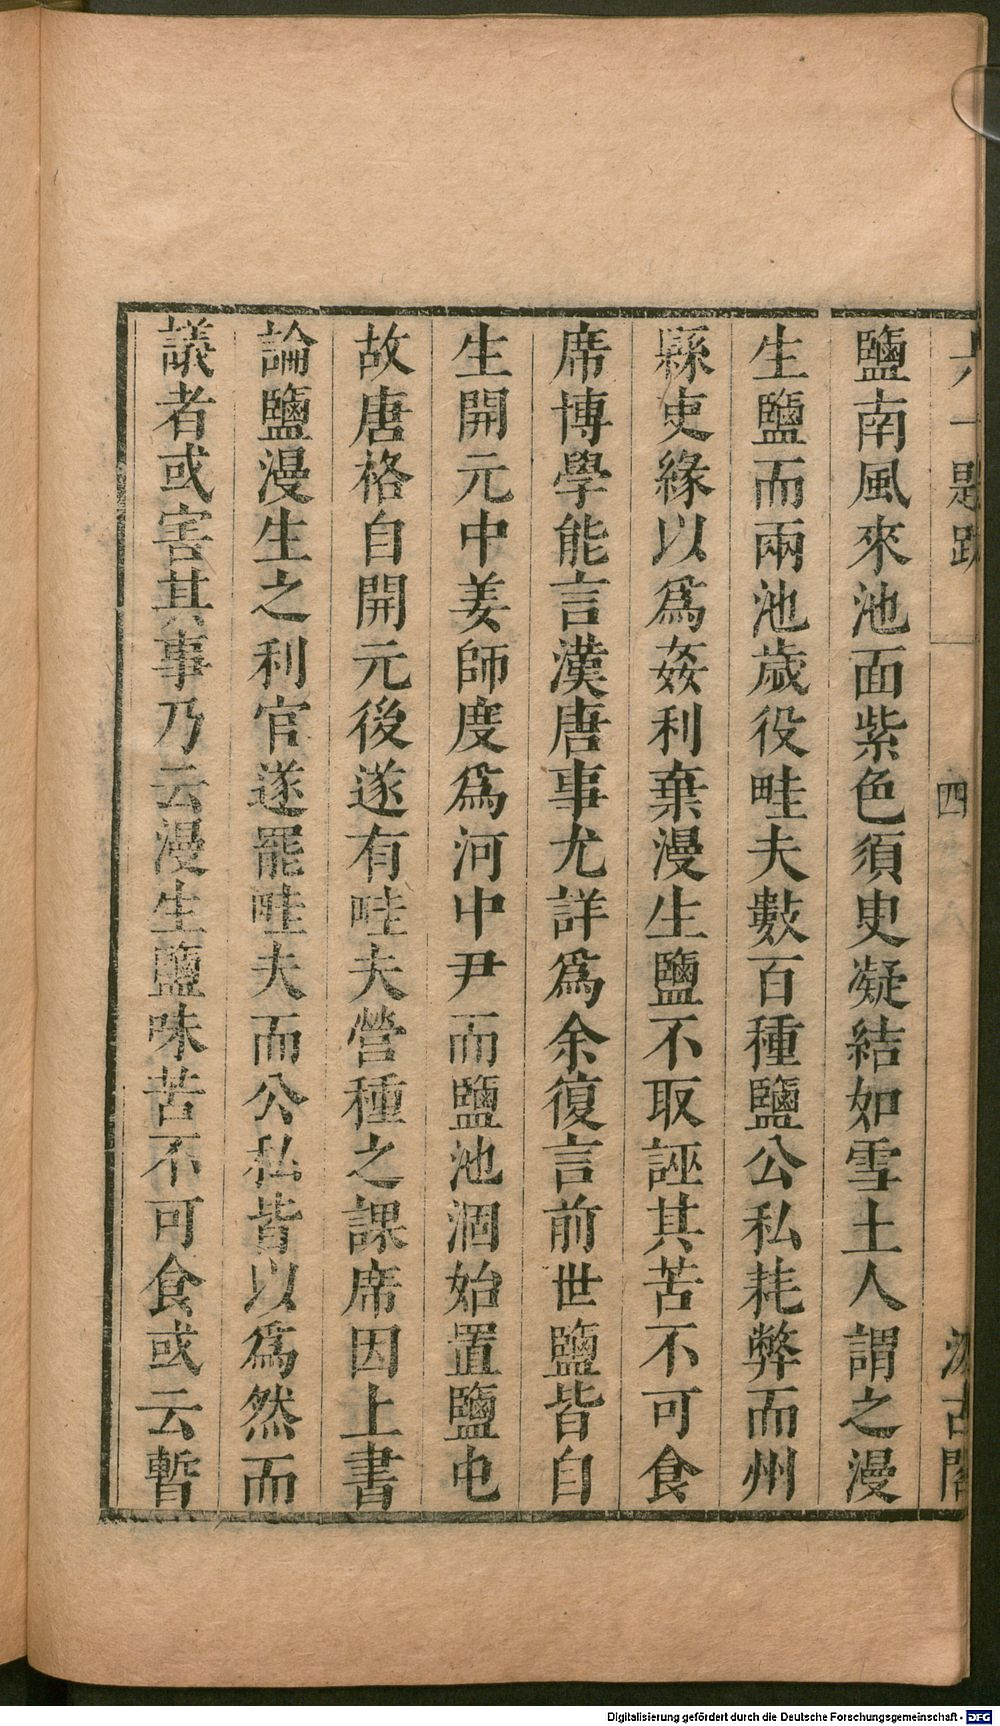 六一題跋 四 汲古閣
鹽南風來池面紫色須臾凝結如雪土人謂之漫
生鹽而兩池歲役畦夫數百種鹽公私耗弊而州
縣吏緣以爲姦利棄漫生鹽不取誣其苦不可食
席博學能言漢唐事尤詳爲余復言前世鹽皆自
生開元中姜師度爲河中尹而鹽池涸始置鹽屯
故唐格自開元後遂有畦夫營種之課席因上書
論鹽漫生之利官遂罷畦夫而公私皆以爲然而
議者或害其事乃云漫生鹽味苦不可食或云暫
Digitalisierung gefördert durch die Deutsche Forschungsgemeinschaft - DFG